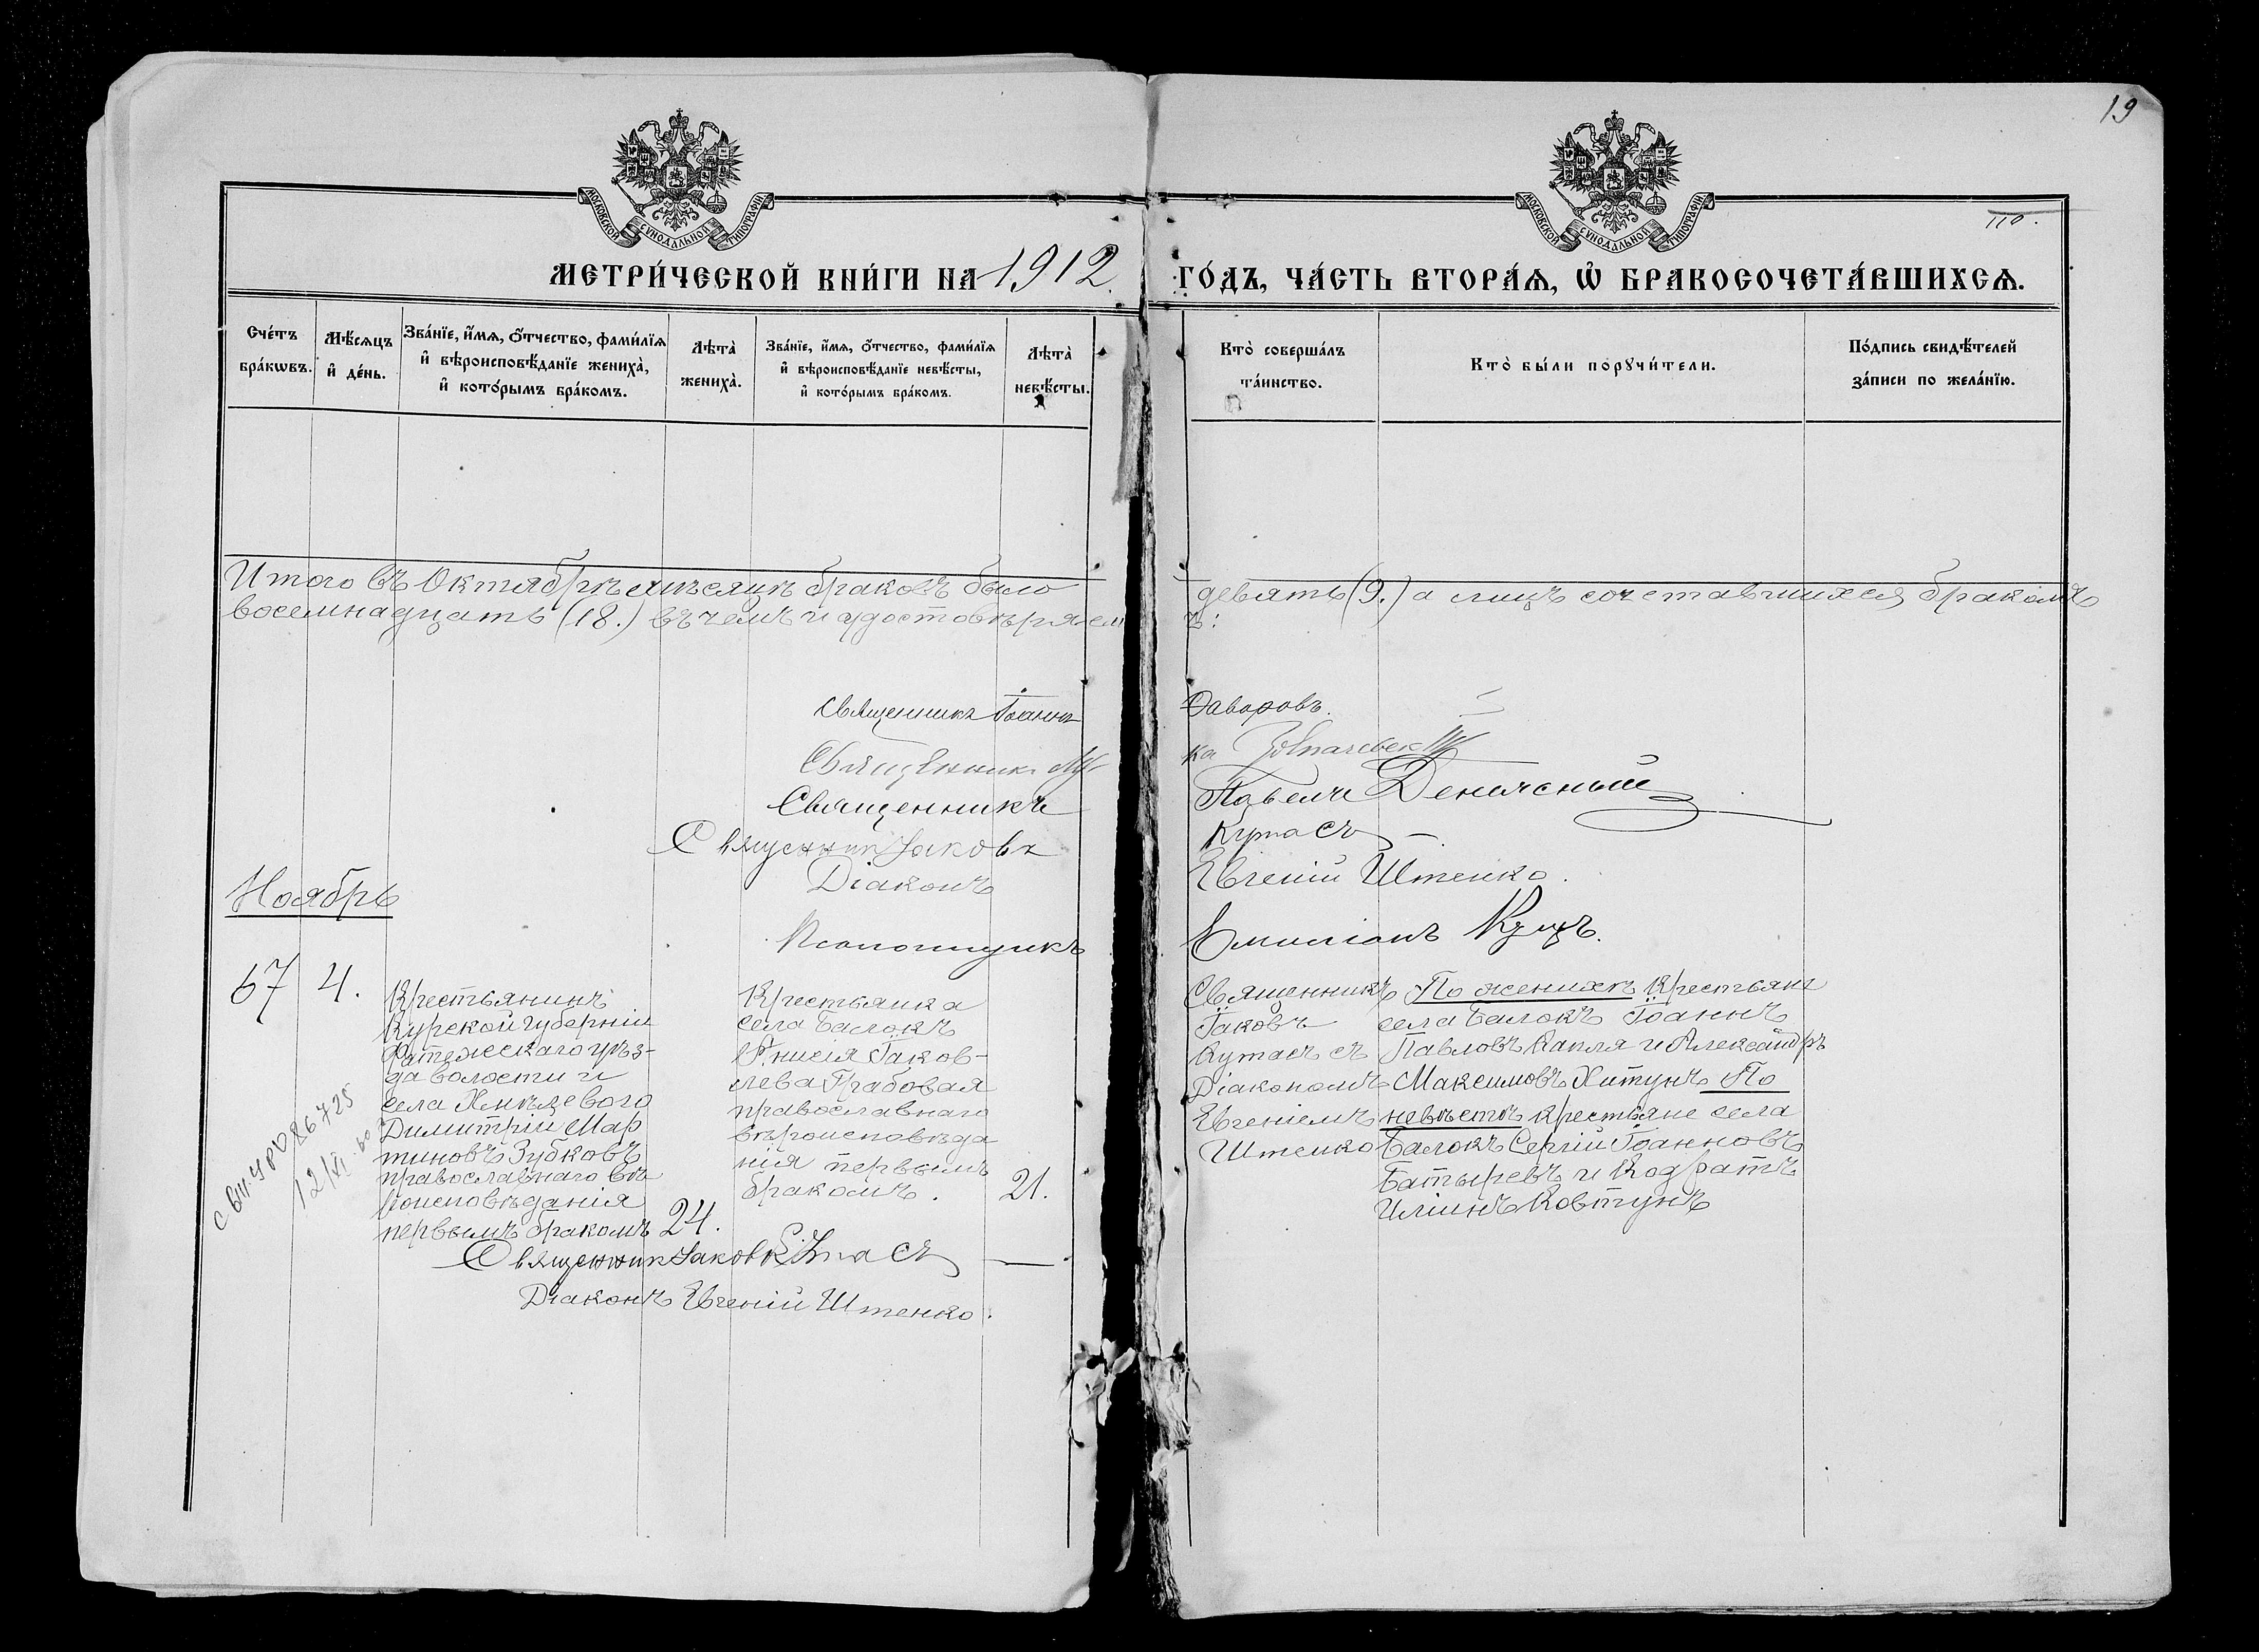 19
МОСКОВСКОЙ СѴНОДАЛЬНОЙ ТИПОГРАФІИ
МОСКОВСКОЙ СѴНОДАЛЬНОЙ ТИПОГРАФІИ
110.
МЕТРИ́ЧЕСКОЙ КНИ́ГИ НА 1912. ГО́ДЪ, ЧА́СТЬ ВТОРА́Ѧ, Ѽ БРАКОСОЧЕТА́ВШИХСѦ.
Сче́тъ бра́кѡвъ.
Мѣ́сѧцъ и҆ де́нь.
Зва́нїе, и҆́мѧ, ѻ҆́тчество, фами́лїѧ
и҆ вѣроисповѣ́данїе жениха̀,
и҆ кото́рымъ бра́комъ.
Лѣта̀ жениха̀.
Зва́нїе, и҆́мѧ, ѻ҆́тчество, фами́лїѧ
и҆ вѣроисповѣ́данїе невѣ́сты,
и҆ кото́рымъ бра́комъ.
Лѣта̀ невѣ́сты.
Кто̀ соверша́лъ
та́инство.
Кто̀ бы́ли порꙋчи́тели.
По́дпись свидѣ́телей
за́писи по жела́нїю.
Итого въ Октябрѣ мѣсяцѣ браковъ было девять (9.) а лицъ сочетавшихся бракомъ
восемнадцать (18.) въ чемъ и удостовѣряем ъ:
Священникъ Іоаннъ Фаворовъ.
Священникъ
Священникъ Павелъ
Священникъ Іаковъ Кутасъ
Діаконъ Евгеній Штенко.
Ноябрь
Псаломщикъ Емиліанъ Куцъ.
67 4.
Крестьянинъ
Курской губерніи
Фатежскаго уѣз-
да волости и
села Хмѣлевого
Димитрій Мар
тиновъ Зубковъ
православнаго вѣ
роисповѣданія
первымъ бракомъ
24.
Крестьянка
села Балокъ
Іаков-
лева Грабовая
православнаго
вѣроисповѣда
нія первымъ
бракомъ.
21.
Священникъ
Іаковъ
Кутасъ съ
Діакономъ
Евгеніемъ
Штенко
По женихѣ Крестьяне
села Балокъ Іоаннъ
Павловъ Капля и Александръ
Максимовъ Хитунъ По
невѣстѣ крестьяне села
Балокъ Сергій Іоанновъ
Батыревъ и Кодратъ
Иліинъ Ковтунъ
Священникъ Іаковъ Кутасъ
Діаконъ Евгеній Штенко.
86725